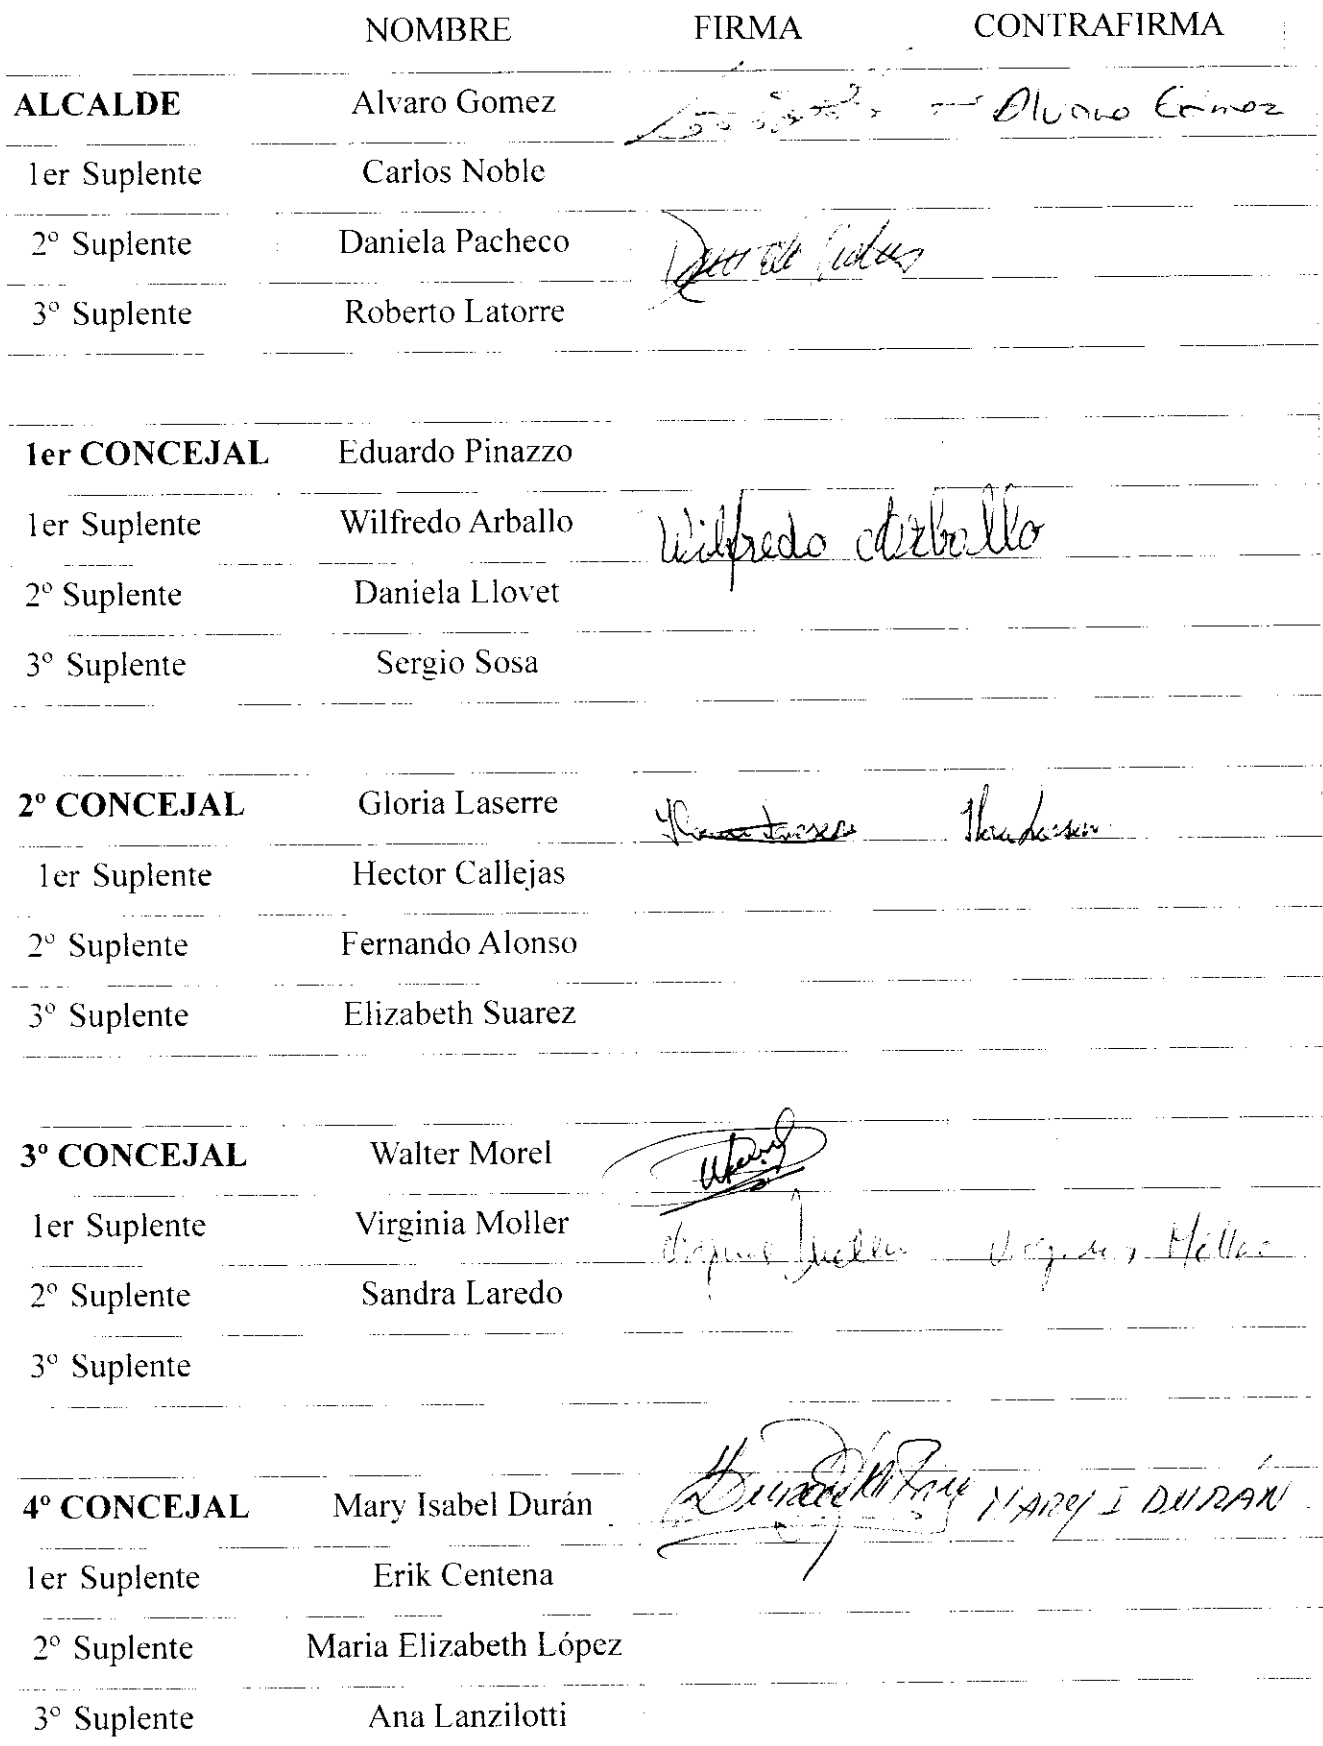 NOMBRE FIRMA CONTRAFIRMA
ALCALDE Alvaro Gomez Alvaro Gómez
1er Suplente Carlos Noble
2º Suplente Daniela Pacheco
3º Suplente Roberto Latorre
1er CONCEJAL Eduardo Pinazzo
1er Suplente Wilfredo Arballo Wilfredo Arballo
2º Suplente Daniela Llovet
3º Suplente Sergio Sosa
2º CONCEJAL Gloria Laserre
1er Suplente Hector Callejas
2º Suplente Fernando Alonso
3º Suplente Elizabeth Suarez
3º CONCEJAL Walter Morel
1er Suplente Virginia Moller Virginia Moller Virginia Möller
2º Suplente Sandra Laredo
3º Suplente
4º CONCEJAL Mary Isabel Durán MARY I DURÁN
1er Suplente Erik Centena
2º Suplente Maria Elizabeth López
3º Suplente Ana Lanzilotti